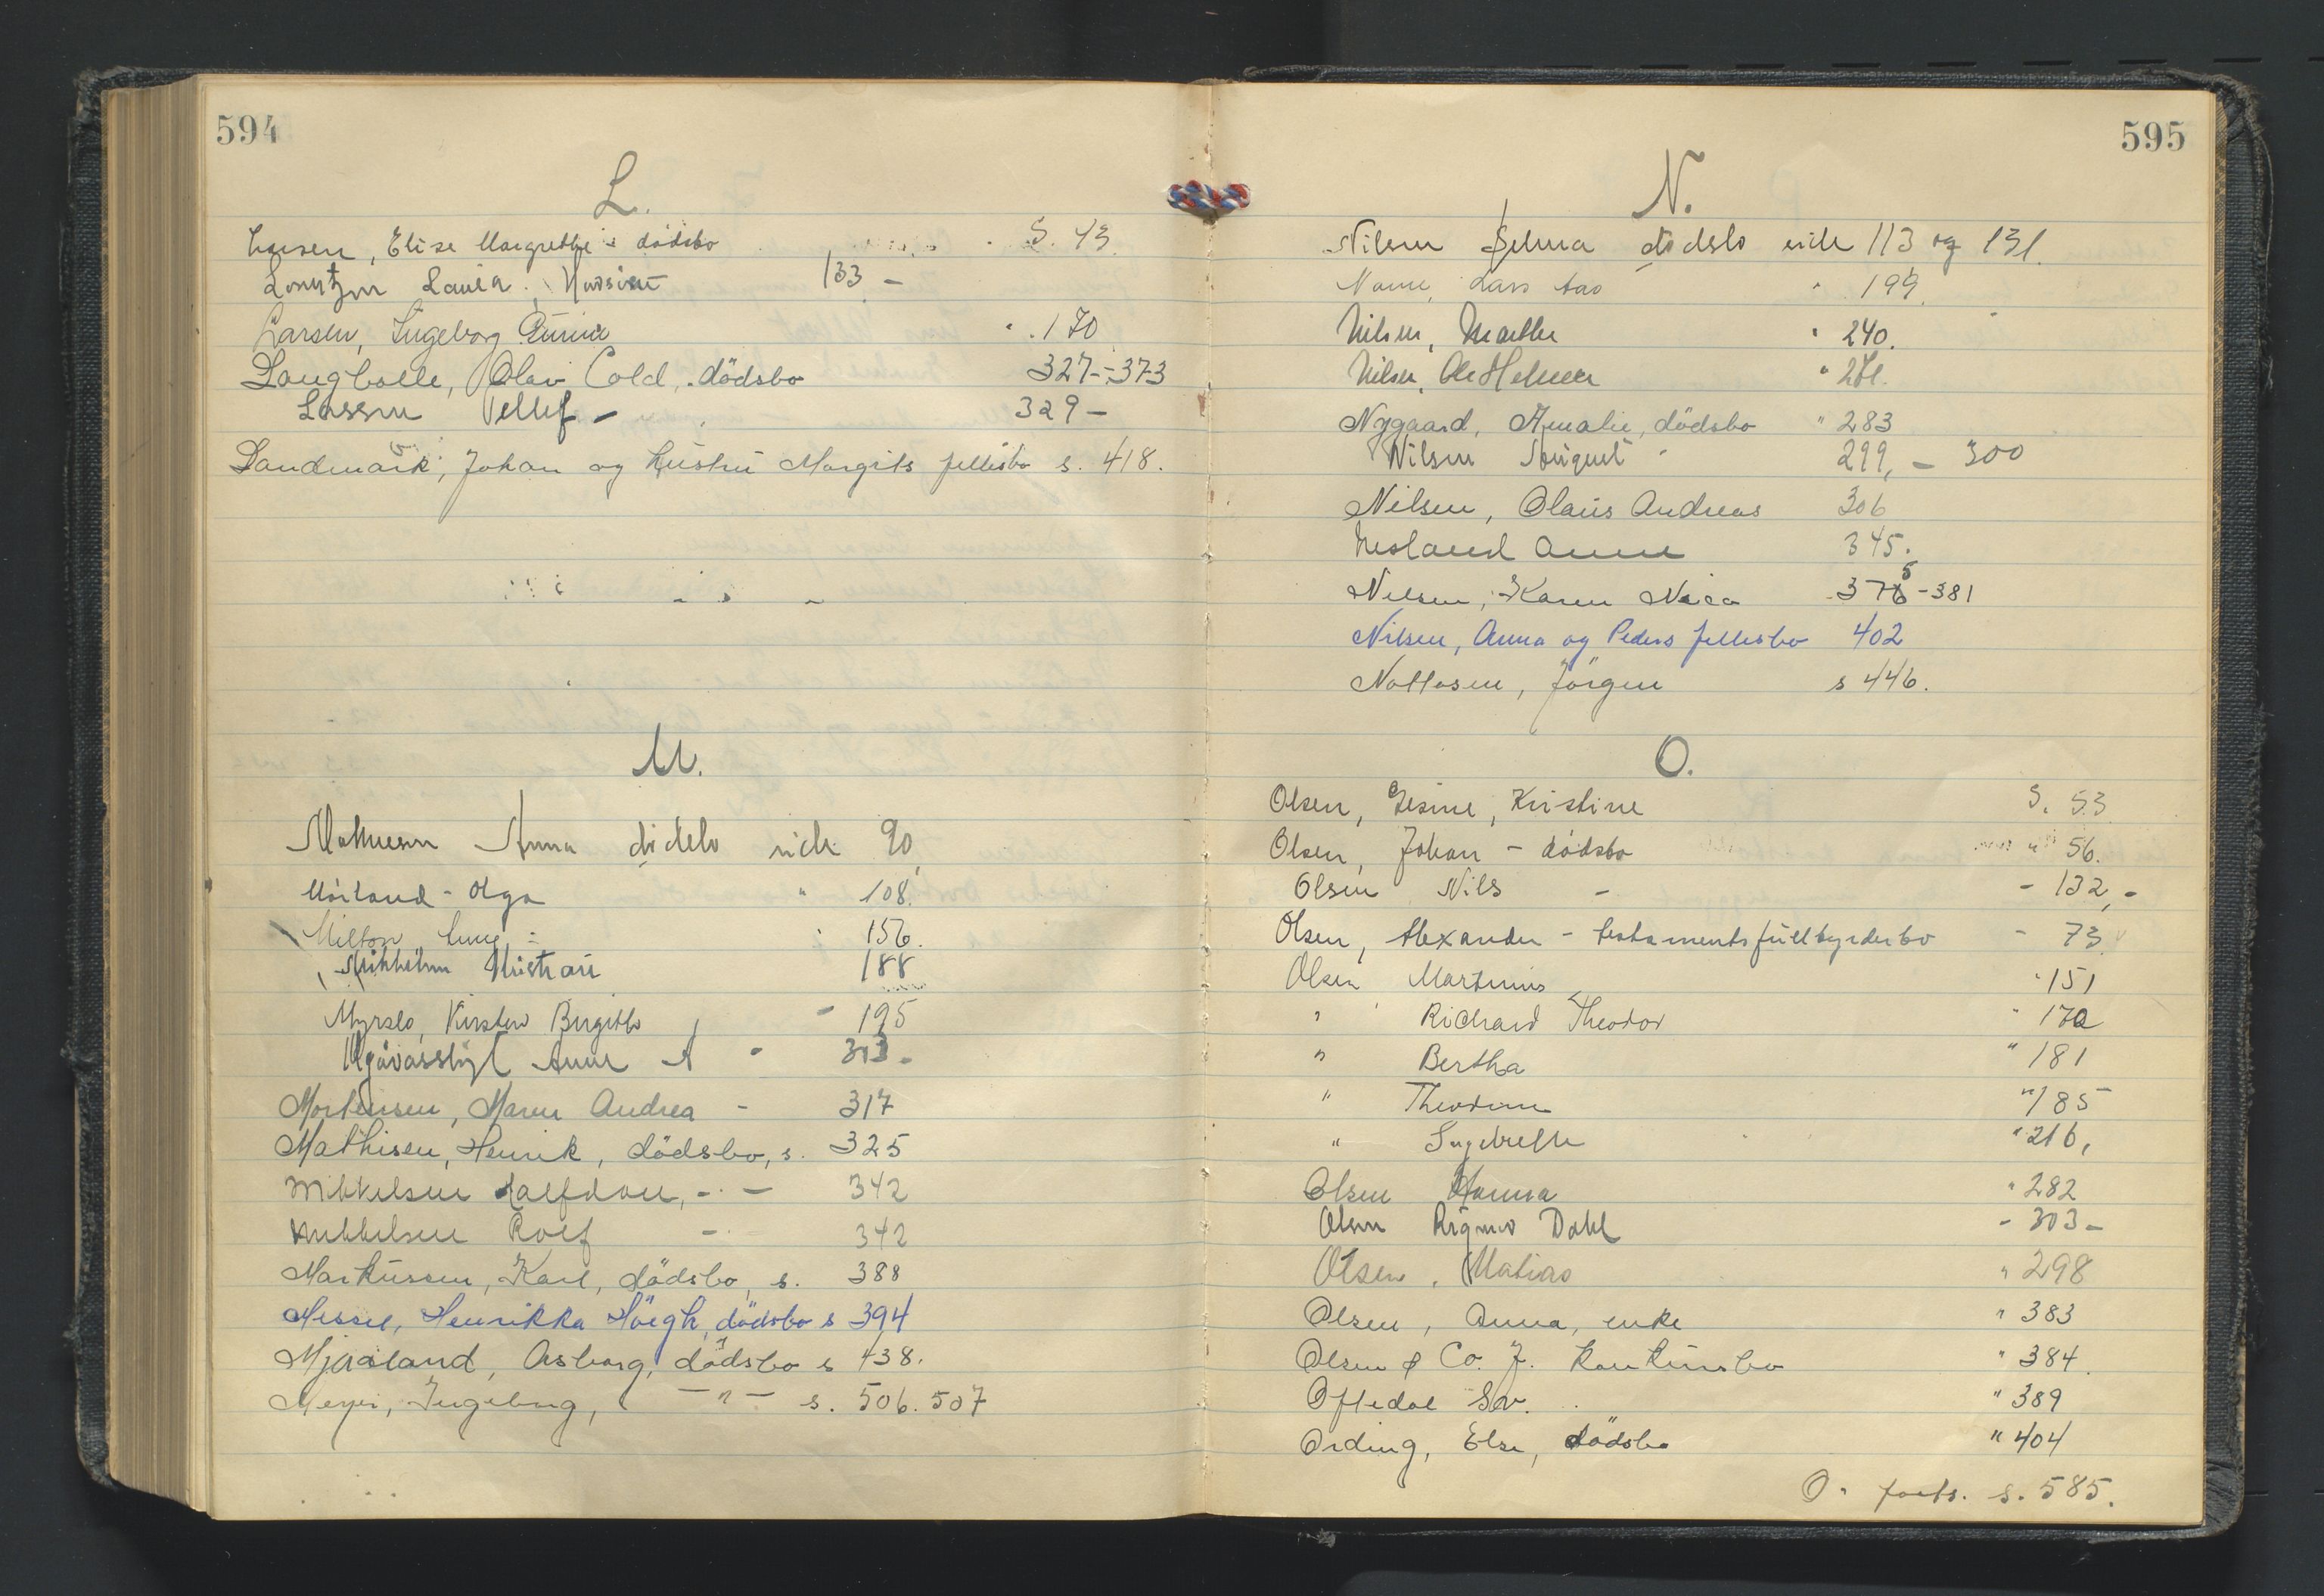 594
L.
Larsen, Elise Margrethe's dödsbo S. 43
Lorentzen Laura 133 -
Larsen, Ingeborg " 170
Langbolle, Olav Cold, dödsbo 327-373
Lassen Tellef - 329 -
Landmark, Johan og hustru Margits fellesbo s. 418.
M.
Mathiesen Anna dödsbo side 90
Möiland - Olga " 108.
Milton 156.
188
Myrslo, Kirsten Birgitte - 195
Anne A - 303 -
Mortensen, Maren Andrea - 317
Mathisen, Henrik, dödsbo, s. 325
Mikkelsen Halfdan, - - 342
Mikkelsen Rolf - 342
Markussen, Karl, dödsbo, s. 388
Messel, Henrikka Höegh, dödsbo s 394
Mjaaland, Asborg, dödsbo s 438.
Meyer, Ingeborg, -"- s. 506. 507
595
N.
Nilsen Selma dödsbo side 113 og 131.
Lars Aas " 199.
Nilsen, Marthe " 240.
Nilsen, Ole Helmer "
Nygaard, Amalie, dödsbo " 283
Nilsen August - 299, - 300
Nilsen, Olaus Andreas 306
Nesland Anne 345.
Nilsen, Karen 375-381
Nilsen, Anna og Peders fellesbo 402
Nottosen, Jörgen s 446.
O.
Olsen, Gesine, Kristine S. 53
Olsen, Johan - dödsbo " 56.
Olsen Nils - - 132,-
Olsen, Alexander - testamentsfullbyrderbo - 73
Olsen Martinius " 151
" Richard Theodor " 170
" Bertha " 181
" " 185
" Ingebrethe " 216,
Olsen Hanna " 282
Olsen Rigmor Dahl - 303 -
Olsen, Matias " 298
Olsen, Anna, enke " 383
Olsen & Co. J. konkursbo " 384.
Oftedal Sv. " 389
Ording, Else, dödsbo " 404
O. forts. s. 585.